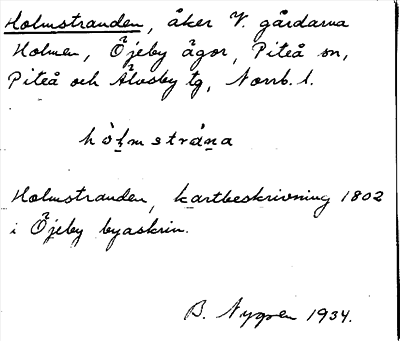 Holmstranden, åker V. gårdarna
Holmen, Öjeby ägor, Piteå sn,
Piteå och Älvsby tg, Norrb. l.
hòl̥mstrána
Holmstranden, kartbeskrivning 1802
i Öjeby byaskrin.
B. Nygren 1934.